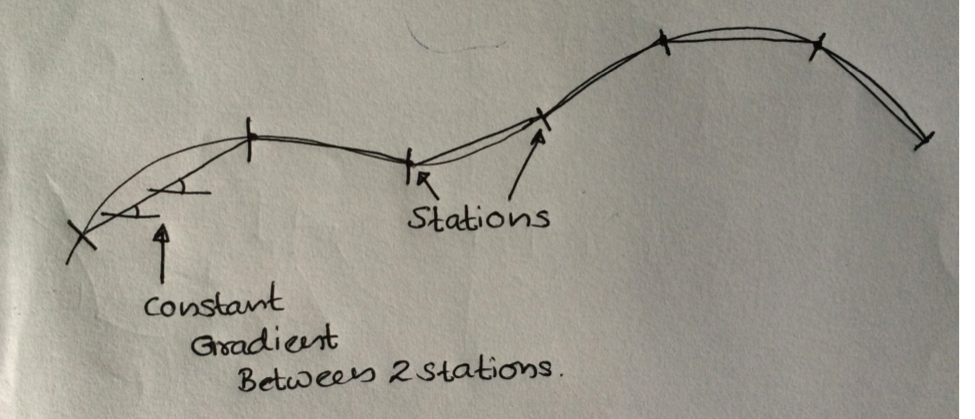 Stations
Constant
Gradient
Between 2 stations.